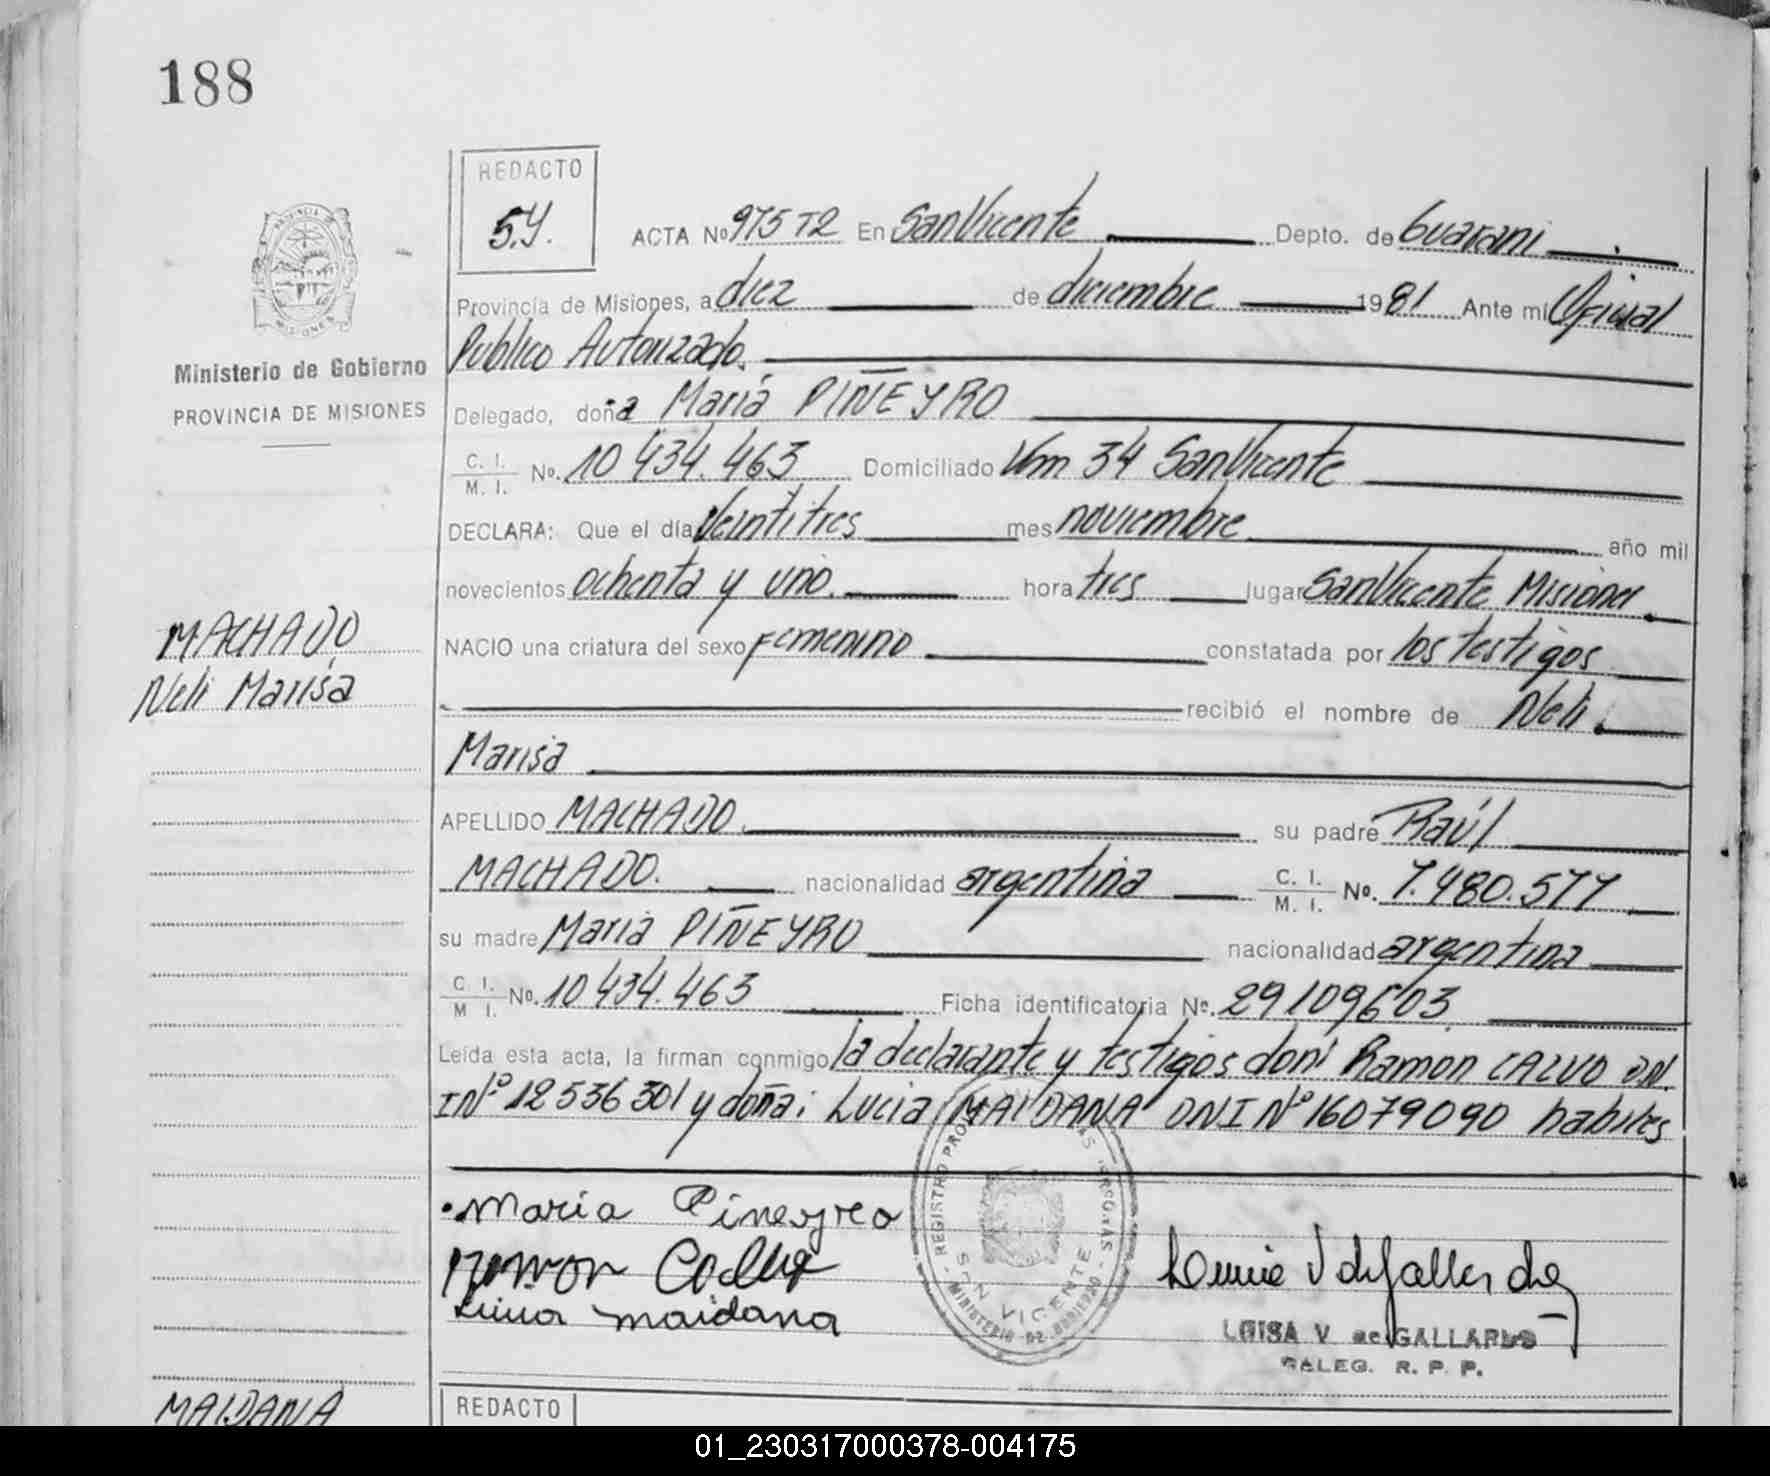 188
REDACTO
S.Y.
ACTA No 97572 En San Vicente Depto. de Guarani
Provincia de Misiones, a diez de diciembre 1981 Ante mi Oficial
Publico Autorizado.
Ministerio de Gobierno
PROVINCIA DE MISIONES
Delegado, doña Maria PIÑEYRO
C. I.
M. I. No. 10 434.463 Domiciliado Km 34 San Vicente
DECLARA: Que el día veintitres mes noviembre año mil
novecientos ochenta y uno. hora tres lugar San Vicente Misiones
MACHADO
Neli Marisa
NACIO una criatura del sexo Femenino constatada por los testigos
recibió el nombre de Neli
Marisa
APELLIDO MACHADO. su padre Raúl
MACHADO. nacionalidad argentina C. I.
M. I. No. 7.480.577
su madre Maria PIÑEYRO nacionalidad argentina
C. I.
M I. No. 10 434.463 Ficha identificatoria No. 29109603
Leída esta acta, la firman conmigo la declarante y testigos don: Ramon CALVO DN.
I Nº 12536301 y doña: Lucia MAIDANA DNI Nº 16079090 habiles
Maria Pineyro
Ramon
Lucia maidana
REGISTRO
SAN VICENTE
MINISTERIO DE GOBIERNO
LUISA V de GALLARDO
DELEG. R. P. P.
MAIDANA
REDACTO
01_230317000378-004175